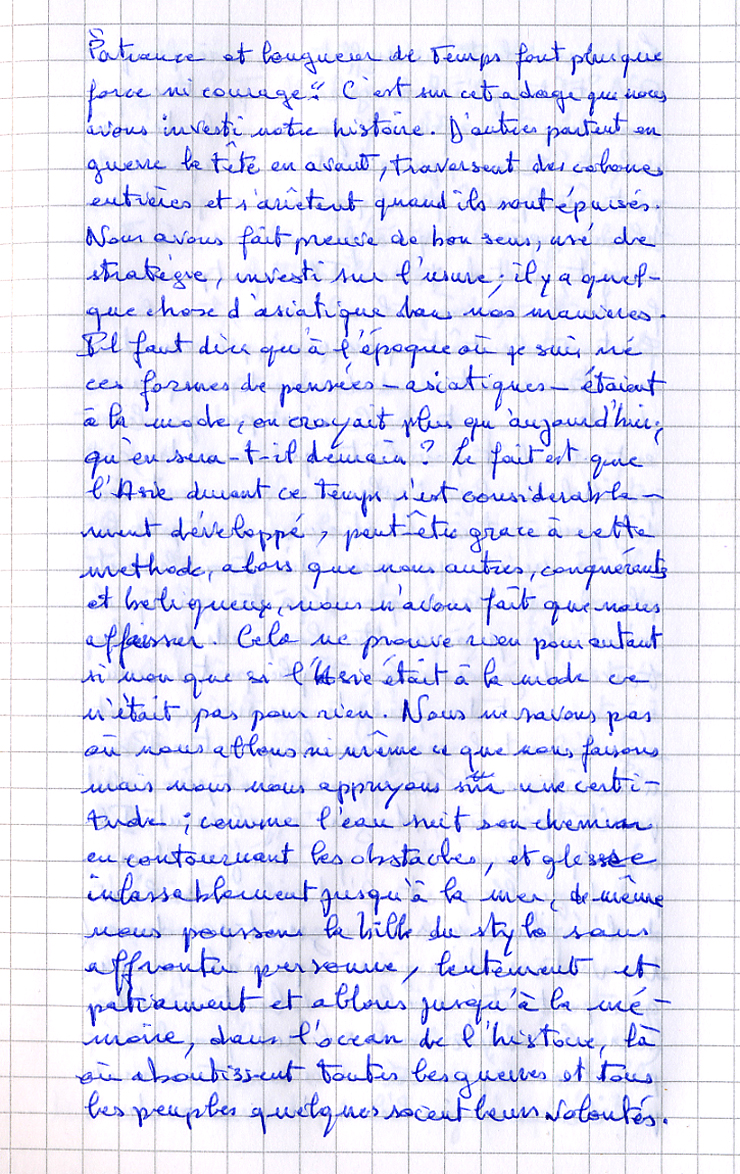 Patience et longueur de temps font plus que
force ni courage". C'est sur cet adage que nous
avons investi notre histoire. D'autres partent en
guerre la tête en avant, traversent des colonnes
entières et s'arrêtent quand ils sont épuisés.
Nous avons fait preuve de bon sens, usé de
stratégie, investi sur l'usure; il y a quel-
que chose d'asiatique dans nos manières.
Il faut dire qu'à l'époque où je suis né
ces formes de pensées - asiatiques - étaient
à la mode, on croyait plus qu'aujourd'hui;
qu'en sera-t-il demain? Le fait est que
l'Asie durant ce temps s'est considerable-
ment développé, peut-être grace à cette
methode, alors que nous autres, conquérants
et beliqueux, nous n'avons fait que nous
affaisser. Cela ne prouve rien pour autant
si non que si l'Asie était à la mode ce
n'était pas pour rien. Nous ne savons pas
où nous allons ni même ce que nous faisons
mais nous nous appuyons sur une certi-
tude; comme l'eau suit son chemin
en contournant les obstacles, et glisse
inlassablement jusqu'à la mer, de même
nous poussons la bille du stylo sans
affronter personne, lentement et
patiament et allons jusqu'à la mé-
moire, dans l'océan de l'histoire, là
où aboutissent toutes les guerres et tous
les peuples quelques soient leurs volontés.